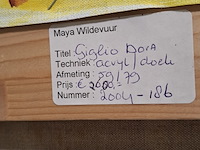 Maya Wildevuur
Titel: Giglio Dora
Techniek: acryl/doek
Afmeting: 59/79
Prijs: € 2000,=
Nummer: 2004-186